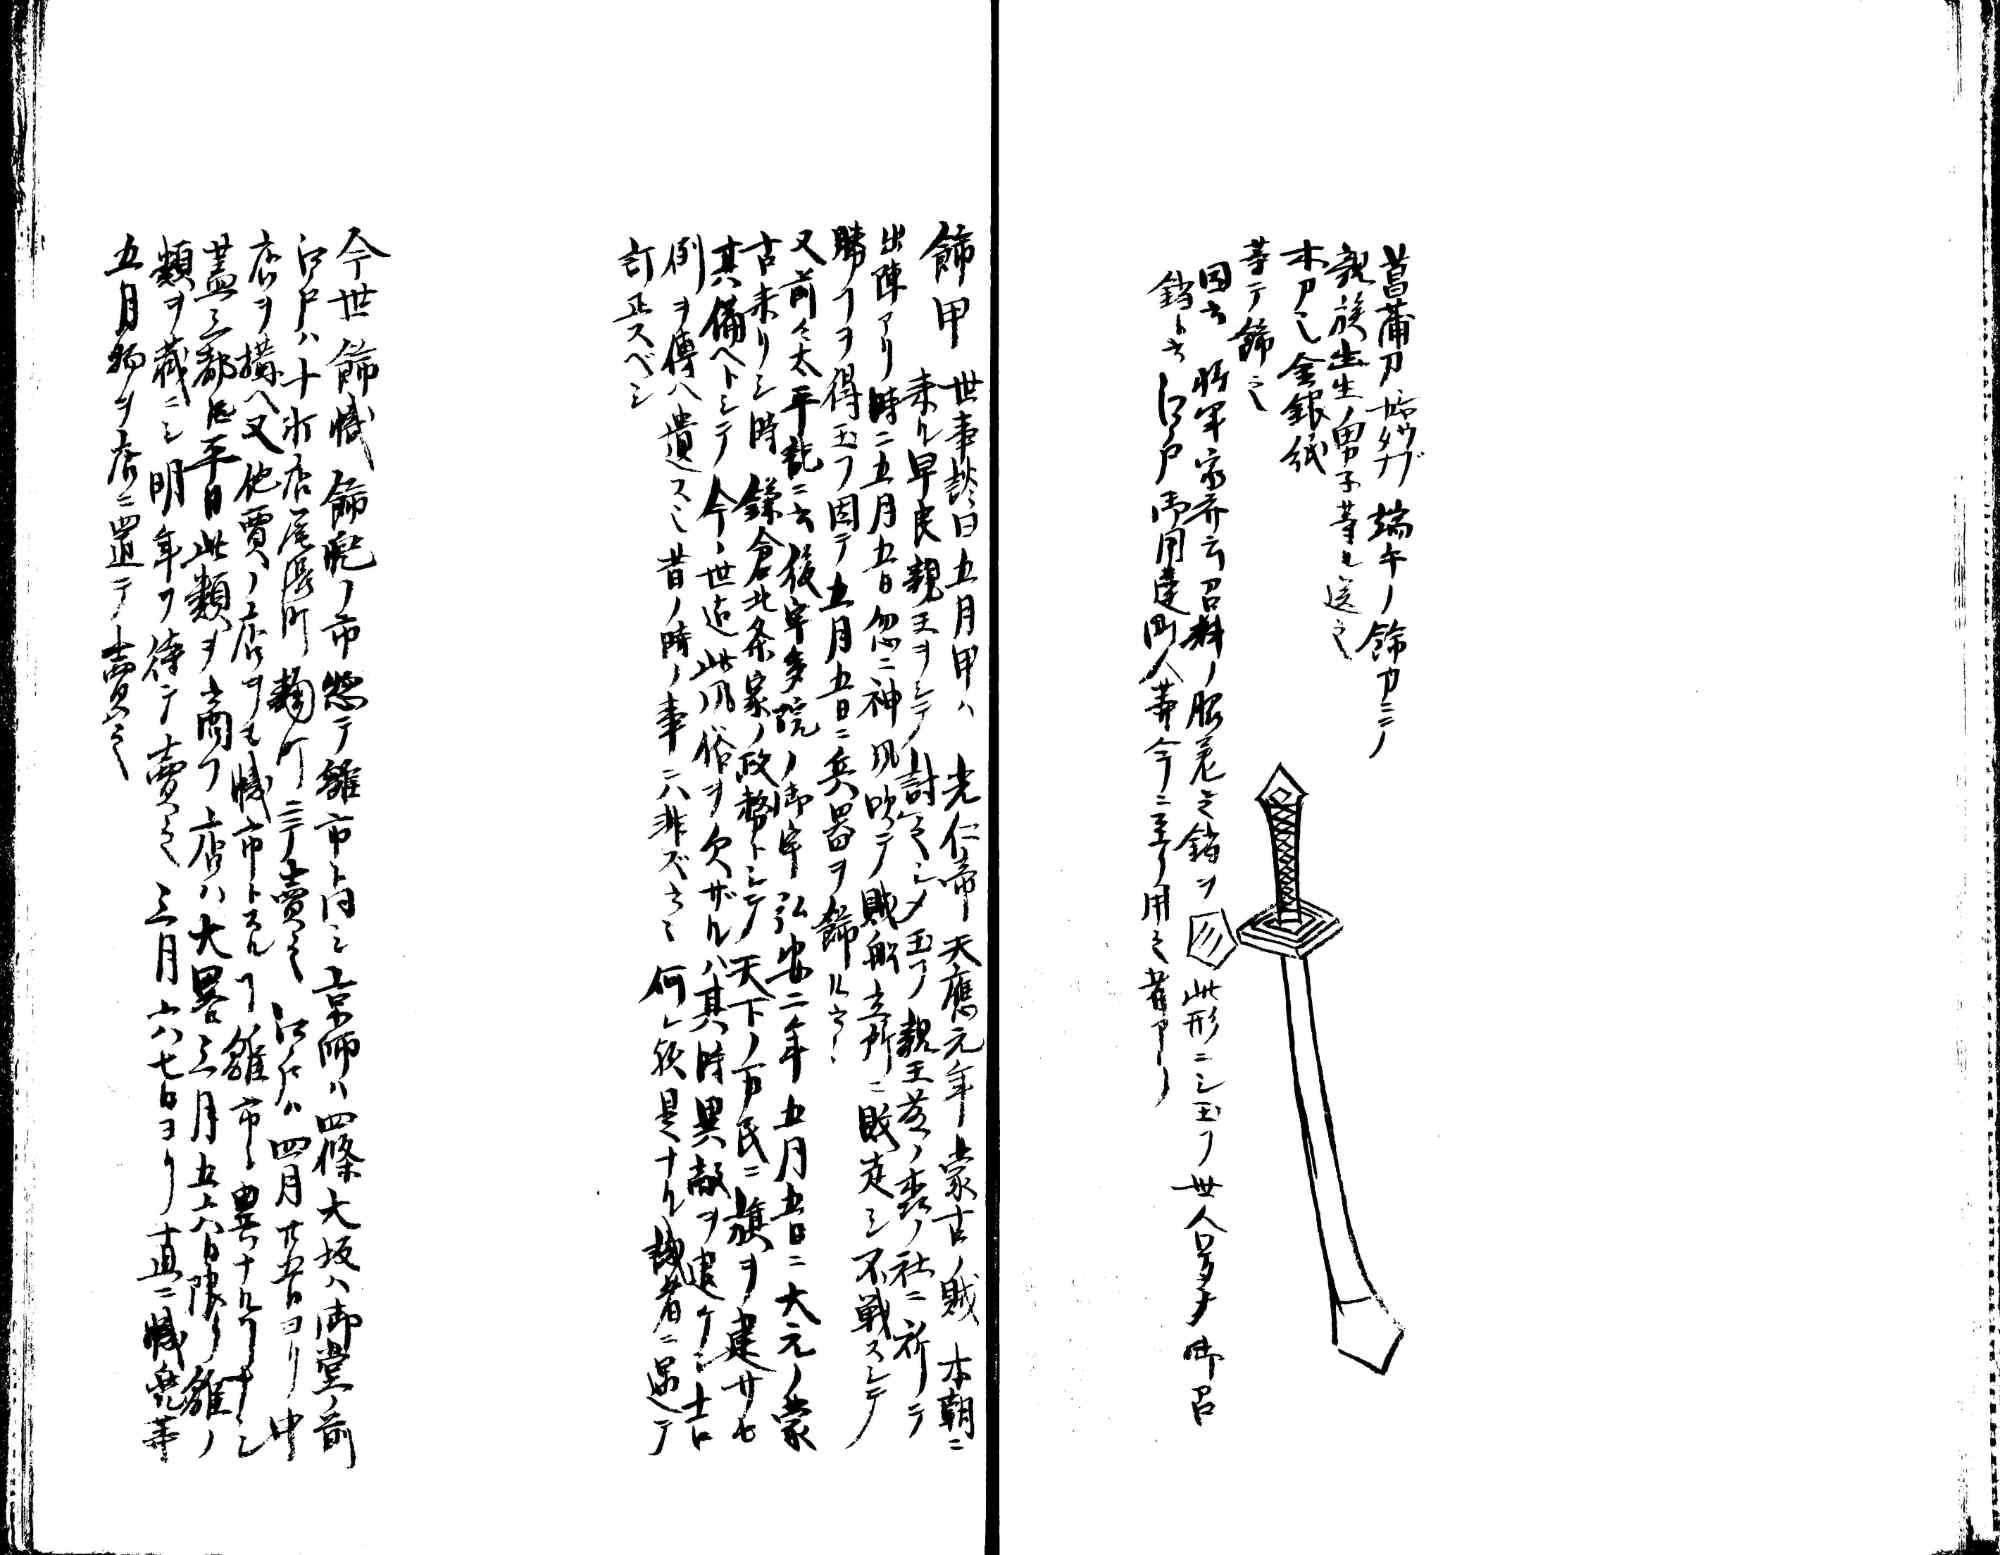 菖蒲刀 シヤウブガタナ 端午ノ飾刀ニテ
親族出生ノ男子等ニ送之
木刀也金銀紙
等テ飾之
因云 将軍家齊公召料ノ服 之鎬ヲ 此形ニシ玉フ世人号テ御召
鎬ト云江戸御用達町人等今ニ至リ用之者アリ
飾甲 世事談曰五月甲ハ 光仁帝天應元年蒙古ノ賊 本朝ニ
来ル早良親王ヲシテ討シメ玉フ親王 ノ森ノ社ニ祈テ
出陣アリ時ニ五月五日忽ニ神風吹テ賊船立所ニ敗走シ不戦シテ
勝フヲ得玉フ因テ五月五日ニ兵器ヲ飾ルト云
又前々太平記ニ云後宇多院ノ御宇弘安二年五月五日ニ大元ノ蒙
古来リシ時鎌倉北条家ノ政務トシテ天下ノ市民ニ旗ヲ建サセ
其備ヘトシテ今ノ世迄此風俗ヲ欠ザルハ其時異敵ヲ 吉
例ヲ傳ヘ遺ス也昔ノ時ノ事ニハ非ズト云 何レ歟是ナル識者ニ逼テ
訂正スベシ
今世飾幟飾兜ノ市惣テ雛市ト同シ京師ハ四條大坂ハ御堂ノ前
江戸ハ十軒店尾張町麹町ニテ賣之 江戸ハ四月廿五日ヨリ中
店ヲ構ヘ又他賈ノ店ヲモ幟市トスルフ雛市ト異ナルフナシ
蓋三都トモ平日此類ヲ商フ店ハ大畧三月五六日限リ雛ノ
類ヲ蔵ニシ明年ヲ待テ賣之 三月六七日ヨリ直ニ幟兜等
五月物ヲ店ニ置テ賣之